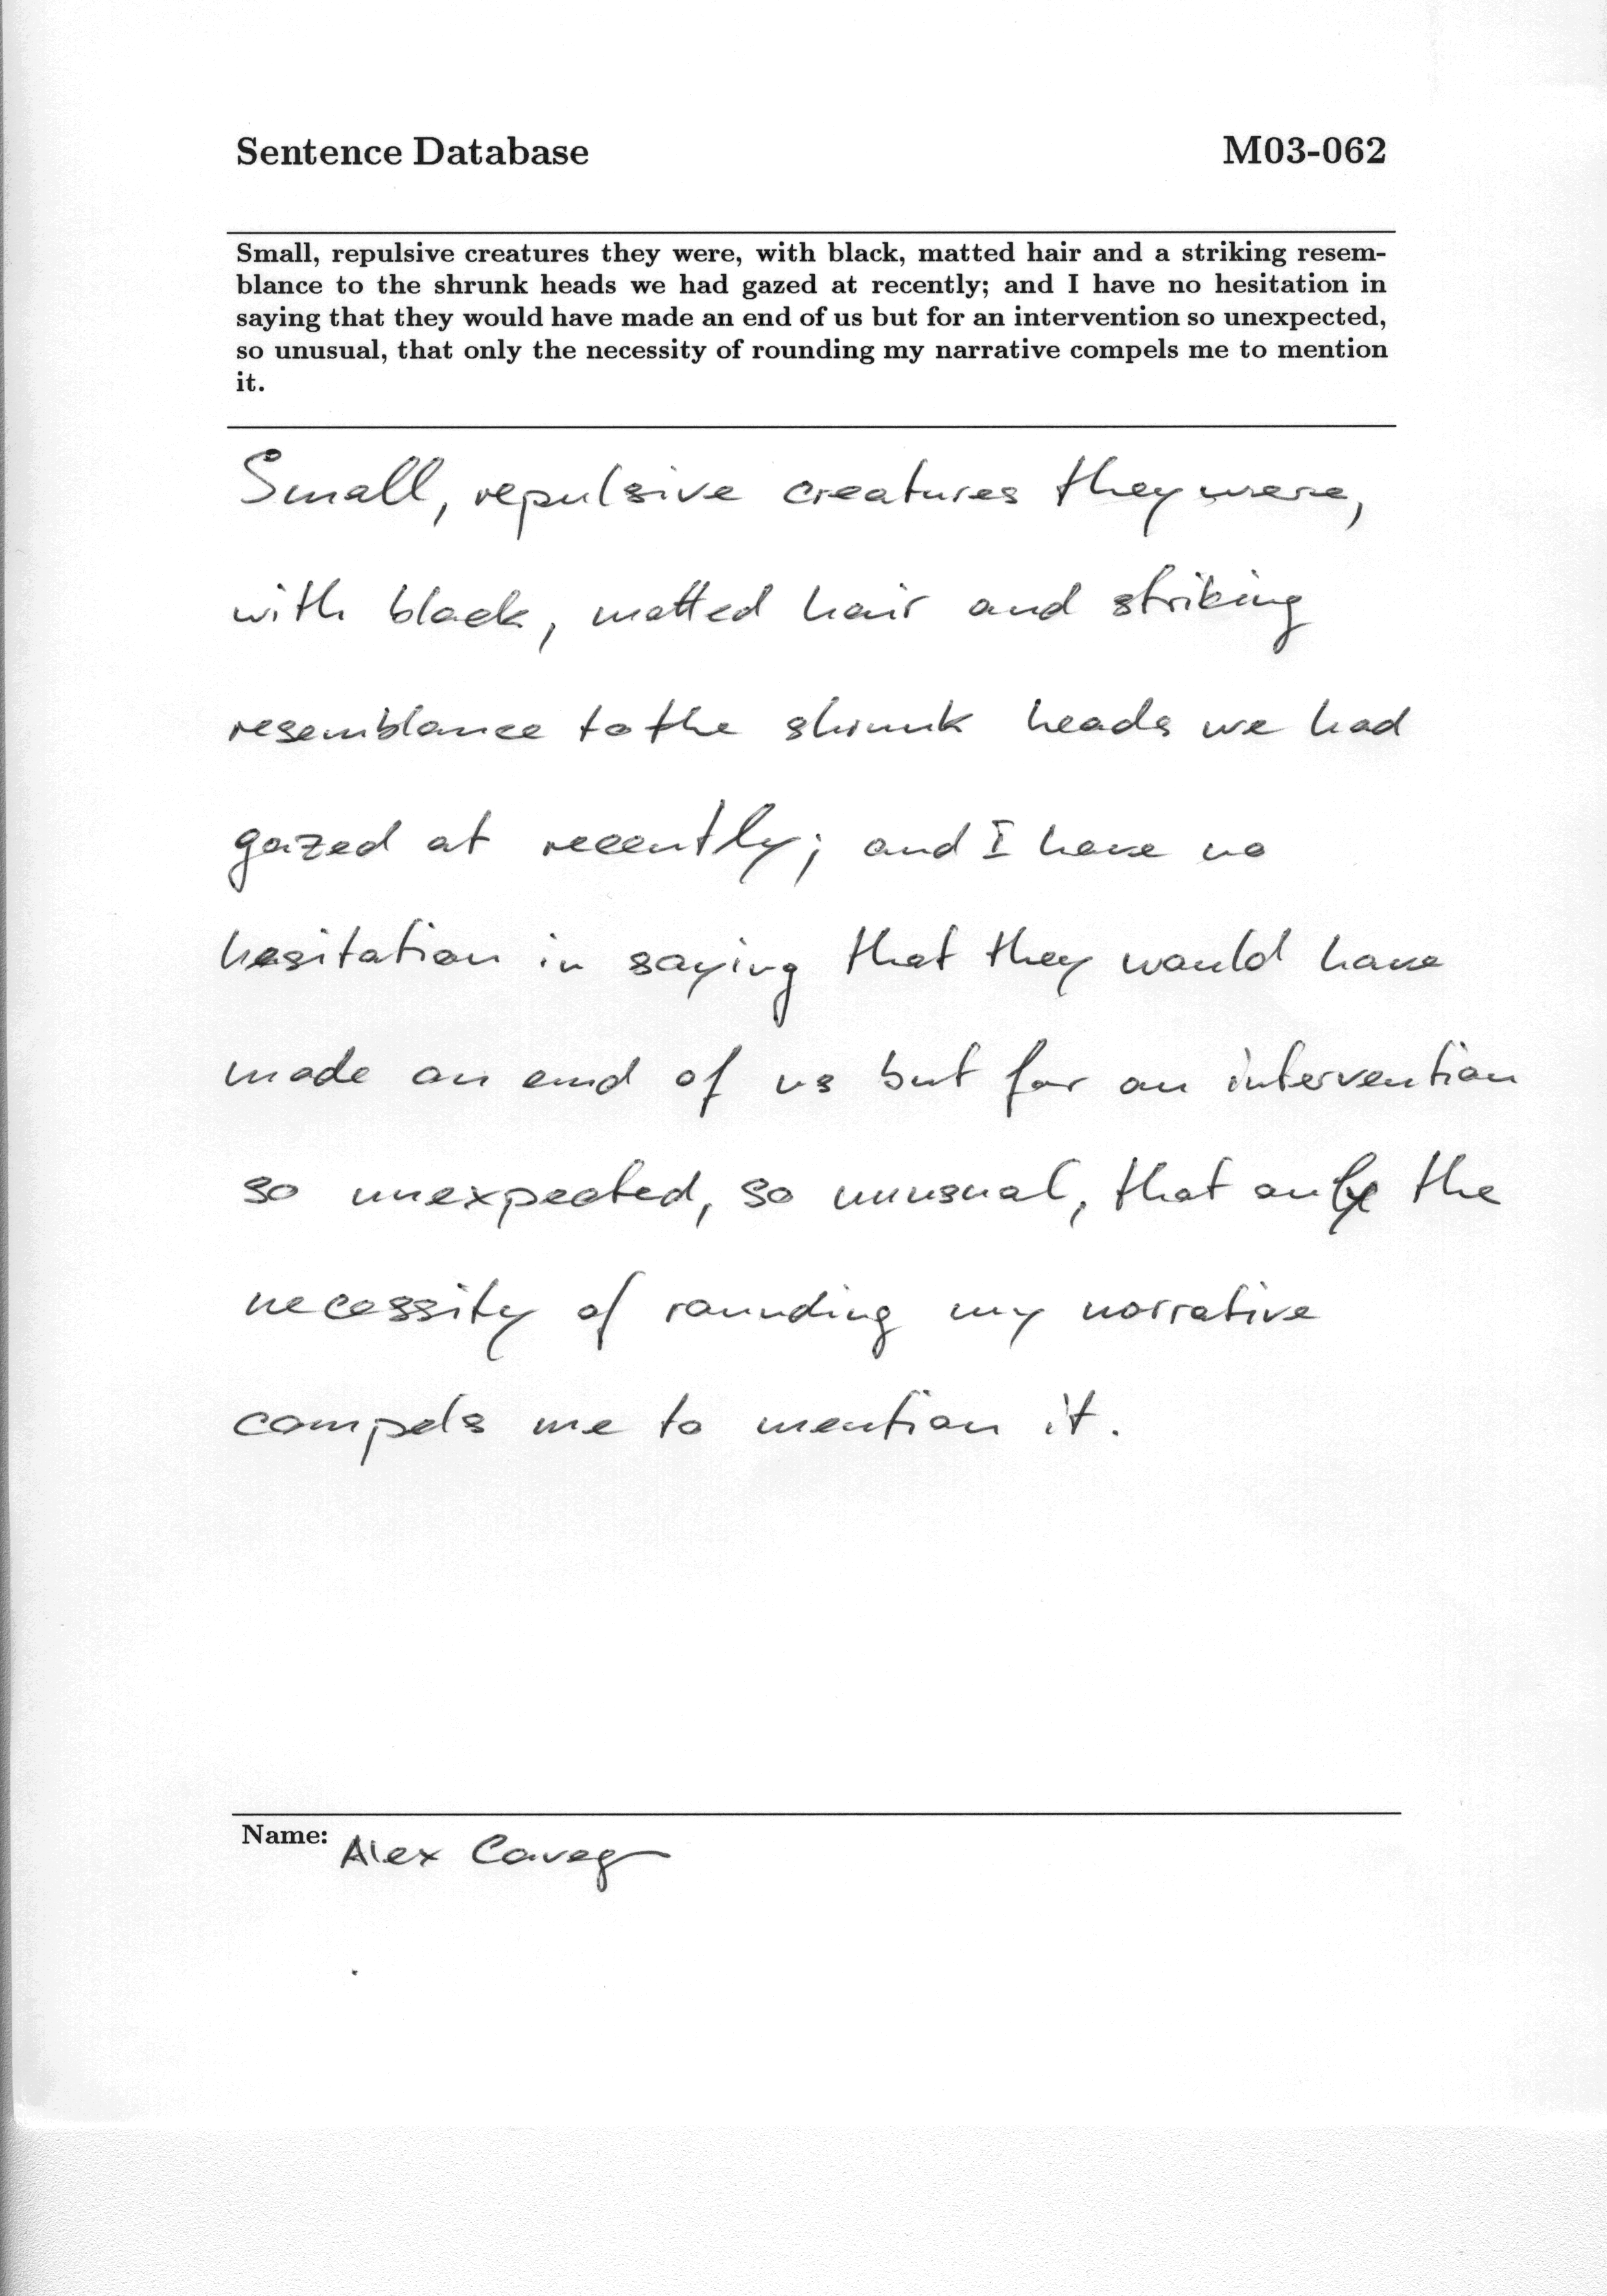 Sentence Database M03-062
Small, repulsive creatures they were, with black, matted hair and a striking resem-
blance to the shrunk heads we had gazed at recently; and I have no hesitation in
saying that they would have made an end of us but for an intervention so unexpected,
so unusual, that only the necessity of rounding my narrative compels me to mention
it.
Small, repulsive creatures they were,
with black, matted hair and striking
resemblance to the shrunk heads we had
gazed at recently; and I have no
hesitation in saying that they would have
made an end of us but for an intervention
so unexpected, so unusual, that only the
necessity of rounding my narrative
compels me to mention it.
Name: Alex Caveg